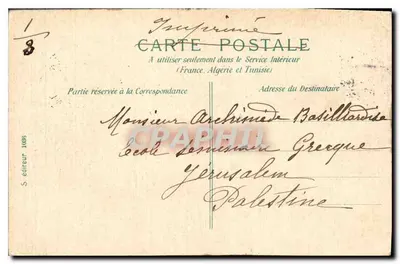 Imprimé
1/8
CARTE POSTALE
A utiliser seulement dans le Service Intérieur
(France, Algérie et Tunisie)
Partie réservée à la Correspondance
Adresse du Destinataire
Monsieur Archimède
École Séminaire Grecque
Jerusalem
Palestine
CPARAMA